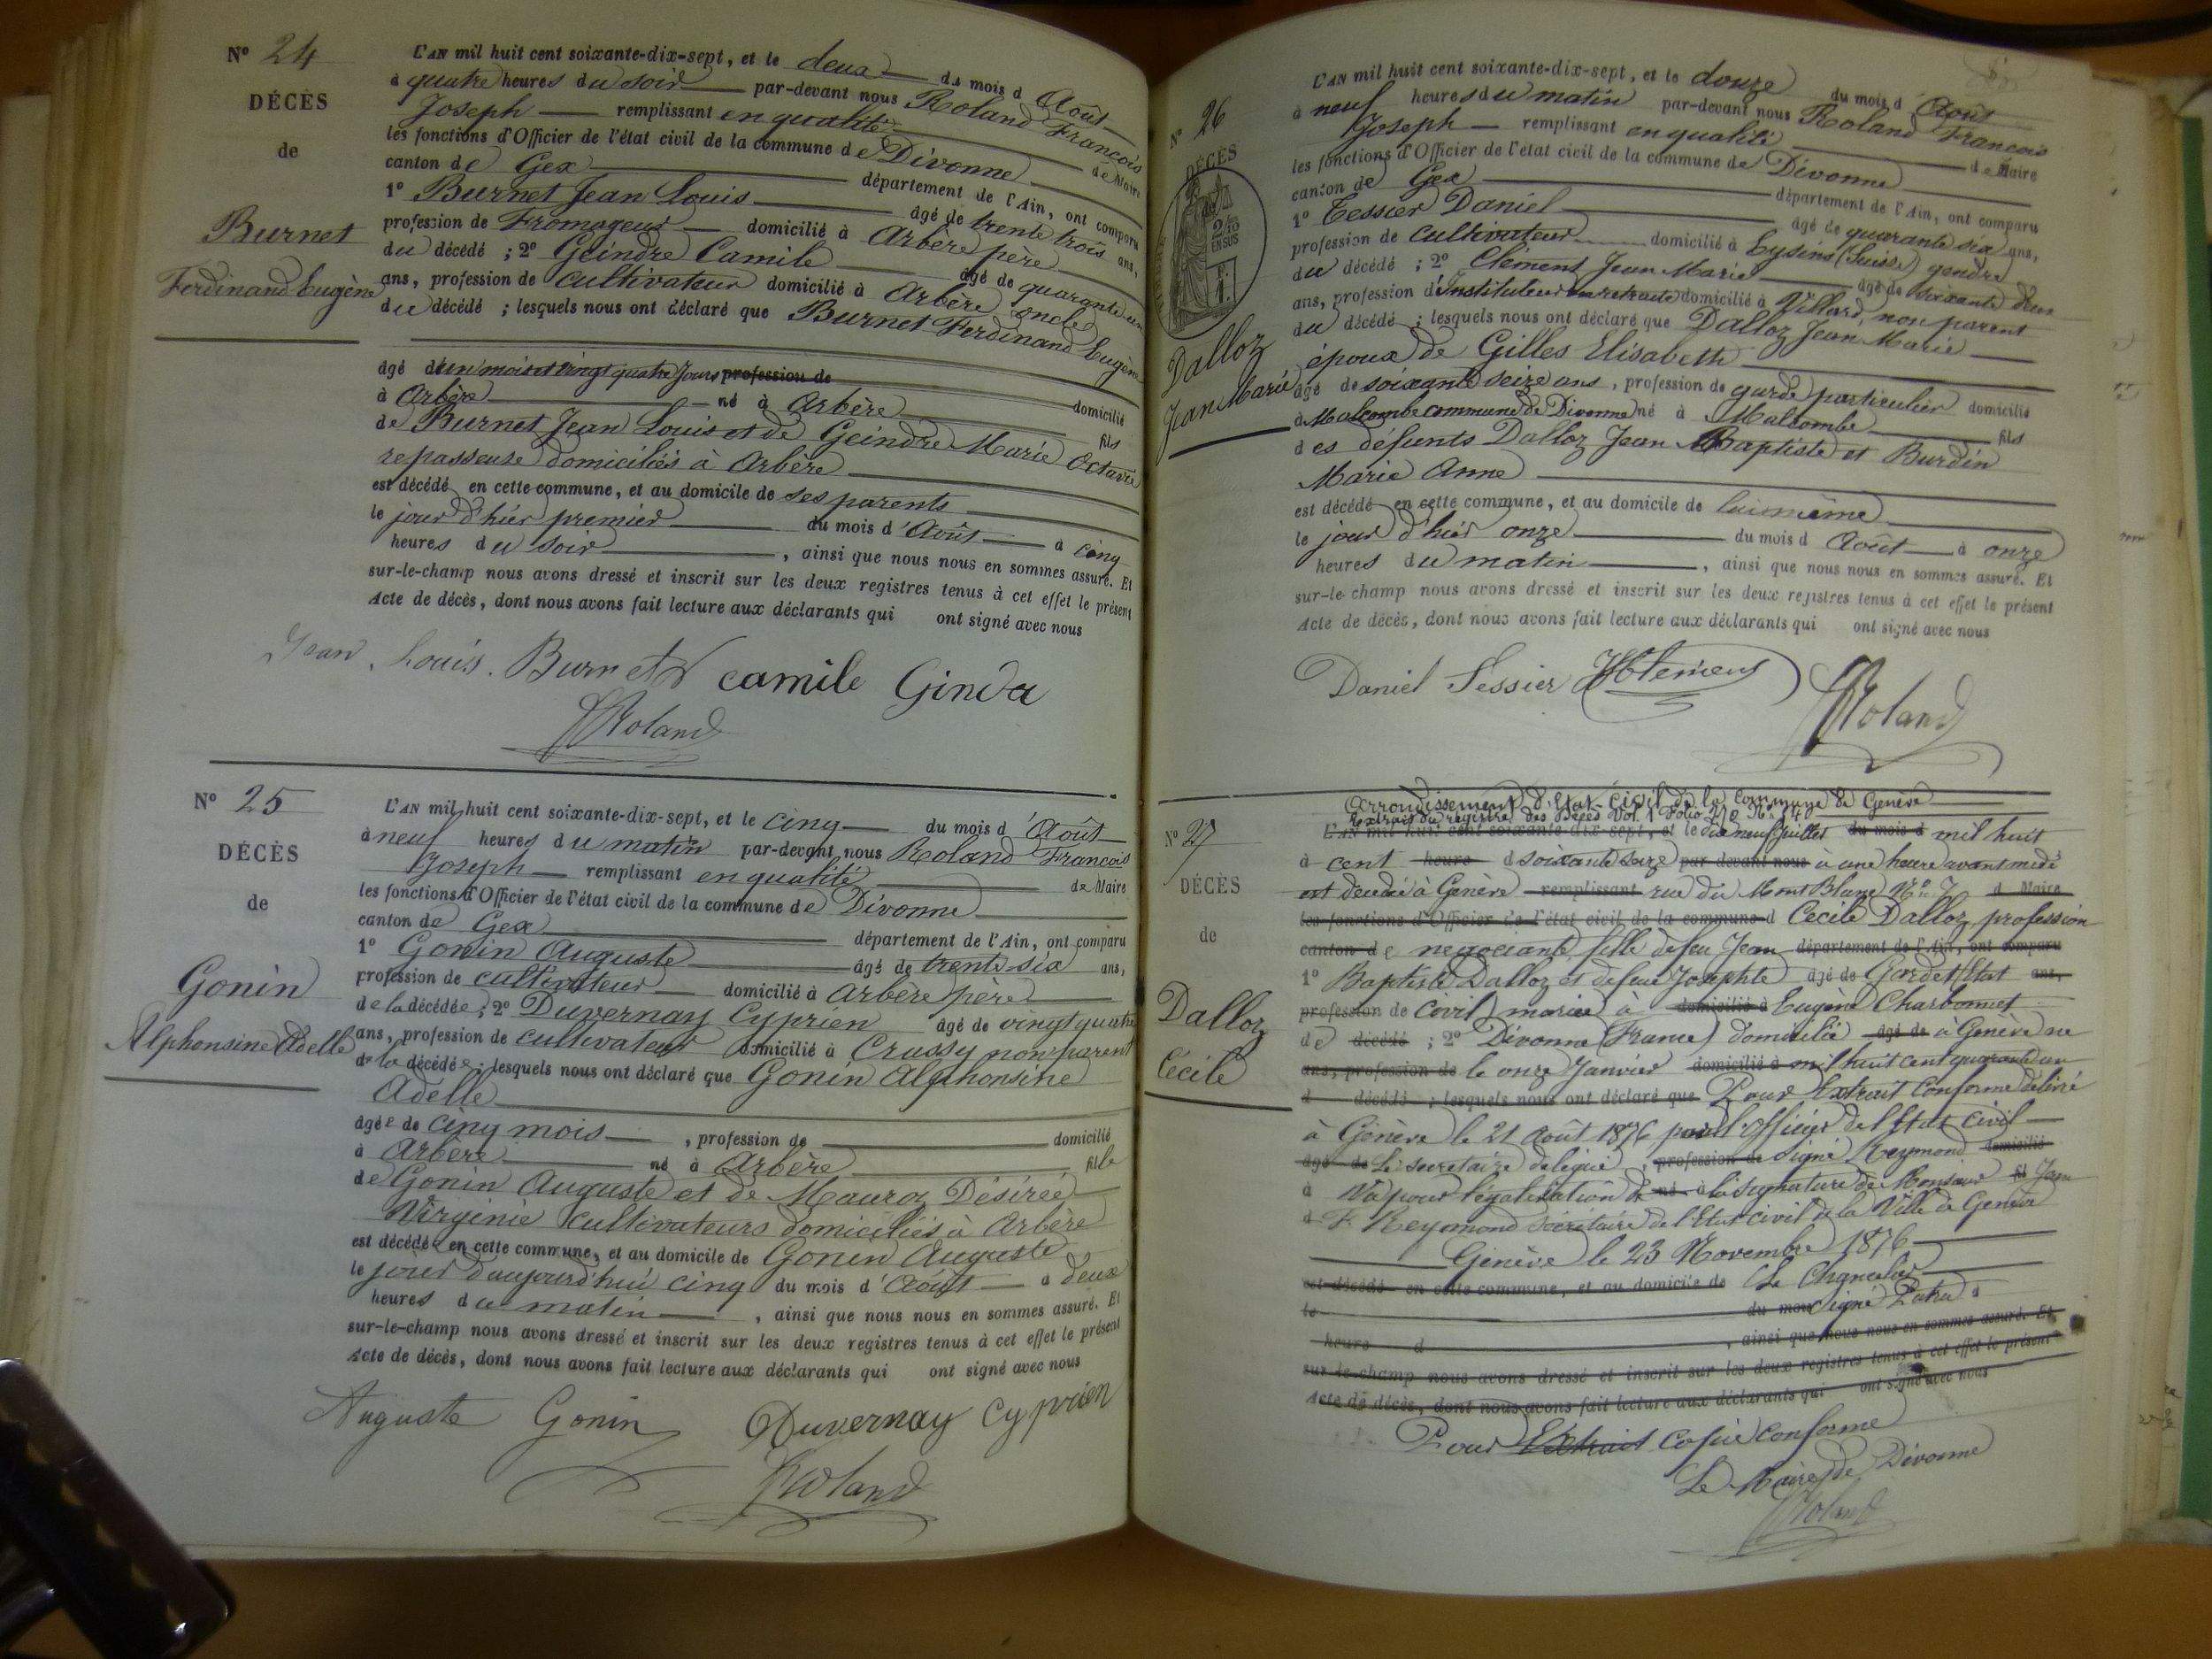 N° 24
DÉCÈS
de
Burnet
Ferdinand Eugène
L'AN mil huit cent soixante-dix-sept, et le deux du mois d'Août
à quatre heures du soir par-devant nous Roland François
Joseph remplissant en qualité de Maire
les fonctions d'Officier de l'état civil de la commune de Divonne
canton de Gex département de l'Ain, ont comparu
1° Burnet Jean Louis âgé de trente trois ans,
profession de Fromageur domicilié à Arbère père
du décédé ; 2° Geindre Camile âgé de quarante un
ans, profession de cultivateur domicilié à Arbère oncle
du décédé ; lesquels nous ont déclaré que Burnet Ferdinand Eugène
âgé d'un mois et vingt quatre jours profession de domicilié
à Arbère né à Arbère fils
de Burnet Jean Louis et de Geindre Marie Octavie
repasseuse domiciliés à Arbère
est décédé en cette commune, et au domicile de ses parents
le jour d'hier premier du mois d'Août à cinq
heures du soir, ainsi que nous nous en sommes assuré. Et
sur-le-champ nous avons dressé et inscrit sur les deux registres tenus à cet effet le présent
Acte de décès, dont nous avons fait lecture aux déclarants qui ont signé avec nous
Jean Louis Burnet camile Ginda
Roland
N° 25
DÉCÈS
de
Gonin
Alphonsine Adelle
L'AN mil huit cent soixante-dix-sept, et le cinq du mois d'Août
à neuf heures du matin par-devant nous Roland François
Joseph remplissant en qualité de Maire
les fonctions d'Officier de l'état civil de la commune de Divonne
canton de Gex département de l'Ain, ont comparu
1° Gonin Auguste âgé de trente-six ans,
profession de cultivateur domicilié à Arbère père
de la décédée ; 2° Duvernay Cyprien âgé de vingt quatre
ans, profession de cultivateur domicilié à Crassy non parent
de la décédée ; lesquels nous ont déclaré que Gonin Alphonsine
Adelle
âgée de cinq mois, profession de domicilié
à Arbère né à Arbère fille
de Gonin Auguste et de Mauroz Désirée
Virginie cultivateurs domiciliés à Arbère
est décédée en cette commune, et au domicile de Gonin Auguste
le jour d'aujourd'hui cinq du mois d'Août à deux
heures du matin, ainsi que nous nous en sommes assuré. Et
sur-le-champ nous avons dressé et inscrit sur les deux registres tenus à cet effet le présent
Acte de décès, dont nous avons fait lecture aux déclarants qui ont signé avec nous
Auguste Gonin Duvernay Cyprien
Roland
N° 26
DÉCÈS
de
2/10
EN SUS
Dalloz
Jean Marie
L'AN mil huit cent soixante-dix-sept, et le douze du mois d'Août
à neuf heures du matin par-devant nous Roland François
Joseph remplissant en qualité de Maire
les fonctions d'Officier de l'état civil de la commune de Divonne
canton de Gex département de l'Ain, ont comparu
1° Tessier Daniel âgé de quarante six ans,
profession de cultivateur domicilié à Eysins (Suisse) gendre
du décédé ; 2° Clement Jean Marie âgé de soixante deux
ans, profession d'Instituteur en retraite domicilié à Villard, non parent
du décédé ; lesquels nous ont déclaré que Dalloz Jean Marie
époux de Gilles Elisabeth
âgé de soixante seize ans, profession de garde particulier domicilié
à Malcombe commune de Divonne né à Malcombe fils
des défunts Dalloz Jean Baptiste et Burdin
Marie Anne
est décédé en cette commune, et au domicile de lui même
le jour d'hier onze du mois d'Août à onze
heures du matin, ainsi que nous nous en sommes assuré. Et
sur-le-champ nous avons dressé et inscrit sur les deux registres tenus à cet effet le présent
Acte de décès, dont nous avons fait lecture aux déclarants qui ont signé avec nous
Daniel Tessier JM Clement
Roland
N° 27
DÉCÈS
de
Dalloz
Cécile
Arrondissement d'Etat-civil de la Commune de Genève
Extrait du registre des Décès Vol. 1 Folio
L'AN mil huit cent soixante-dix-sept, et le dix neuf Juillet du mois d mil huit
à cent heure d soixante seize par-devant nous à une heure avant midi
est décédée à Genève remplissant rue du Mont Blanc N° 7 d Maire
les fonctions d'Officier de l'état civil de la commune d Cécile Dalloz, profession
canton de negociante, fille de feu Jean département de l'Ain, ont comparu
1° Baptiste Dalloz et de feue Josephte âgé de Gardet, Etat ans,
profession de civil, mariée à domicilié à Eugène Charbonnet
de décédé ; 2° Divonne (France) domiciliée âgé de à Genève née
ans, profession de le onze Janvier domicilié à mil huit cent quarante un
d décédé ; lesquels nous ont déclaré que Pour Extrait conforme délivré
à Genève le 21 Août 1876 pour l'officier de l'Etat civil
âgé de Le secrétaire délégué, profession de signé Reymond domicilié
à Vu pour légalisation de né à la signature de Monsieur fil Jean
d F. Reymond secrétaire de l'Etat civil de la Ville de Genève
Genève le 23 Novembre 1876
est décédé en cette commune, et au domicile de Le Chancelier
le du mois signé à
heure d, ainsi que nous nous en sommes assuré. Et
sur-le-champ nous avons dressé et inscrit sur les deux registres tenus à cet effet le présent
Acte de décès, dont nous avons fait lecture aux déclarants qui ont signé avec nous
Pour Extrait copie conforme
Le Maire de Divonne
Roland